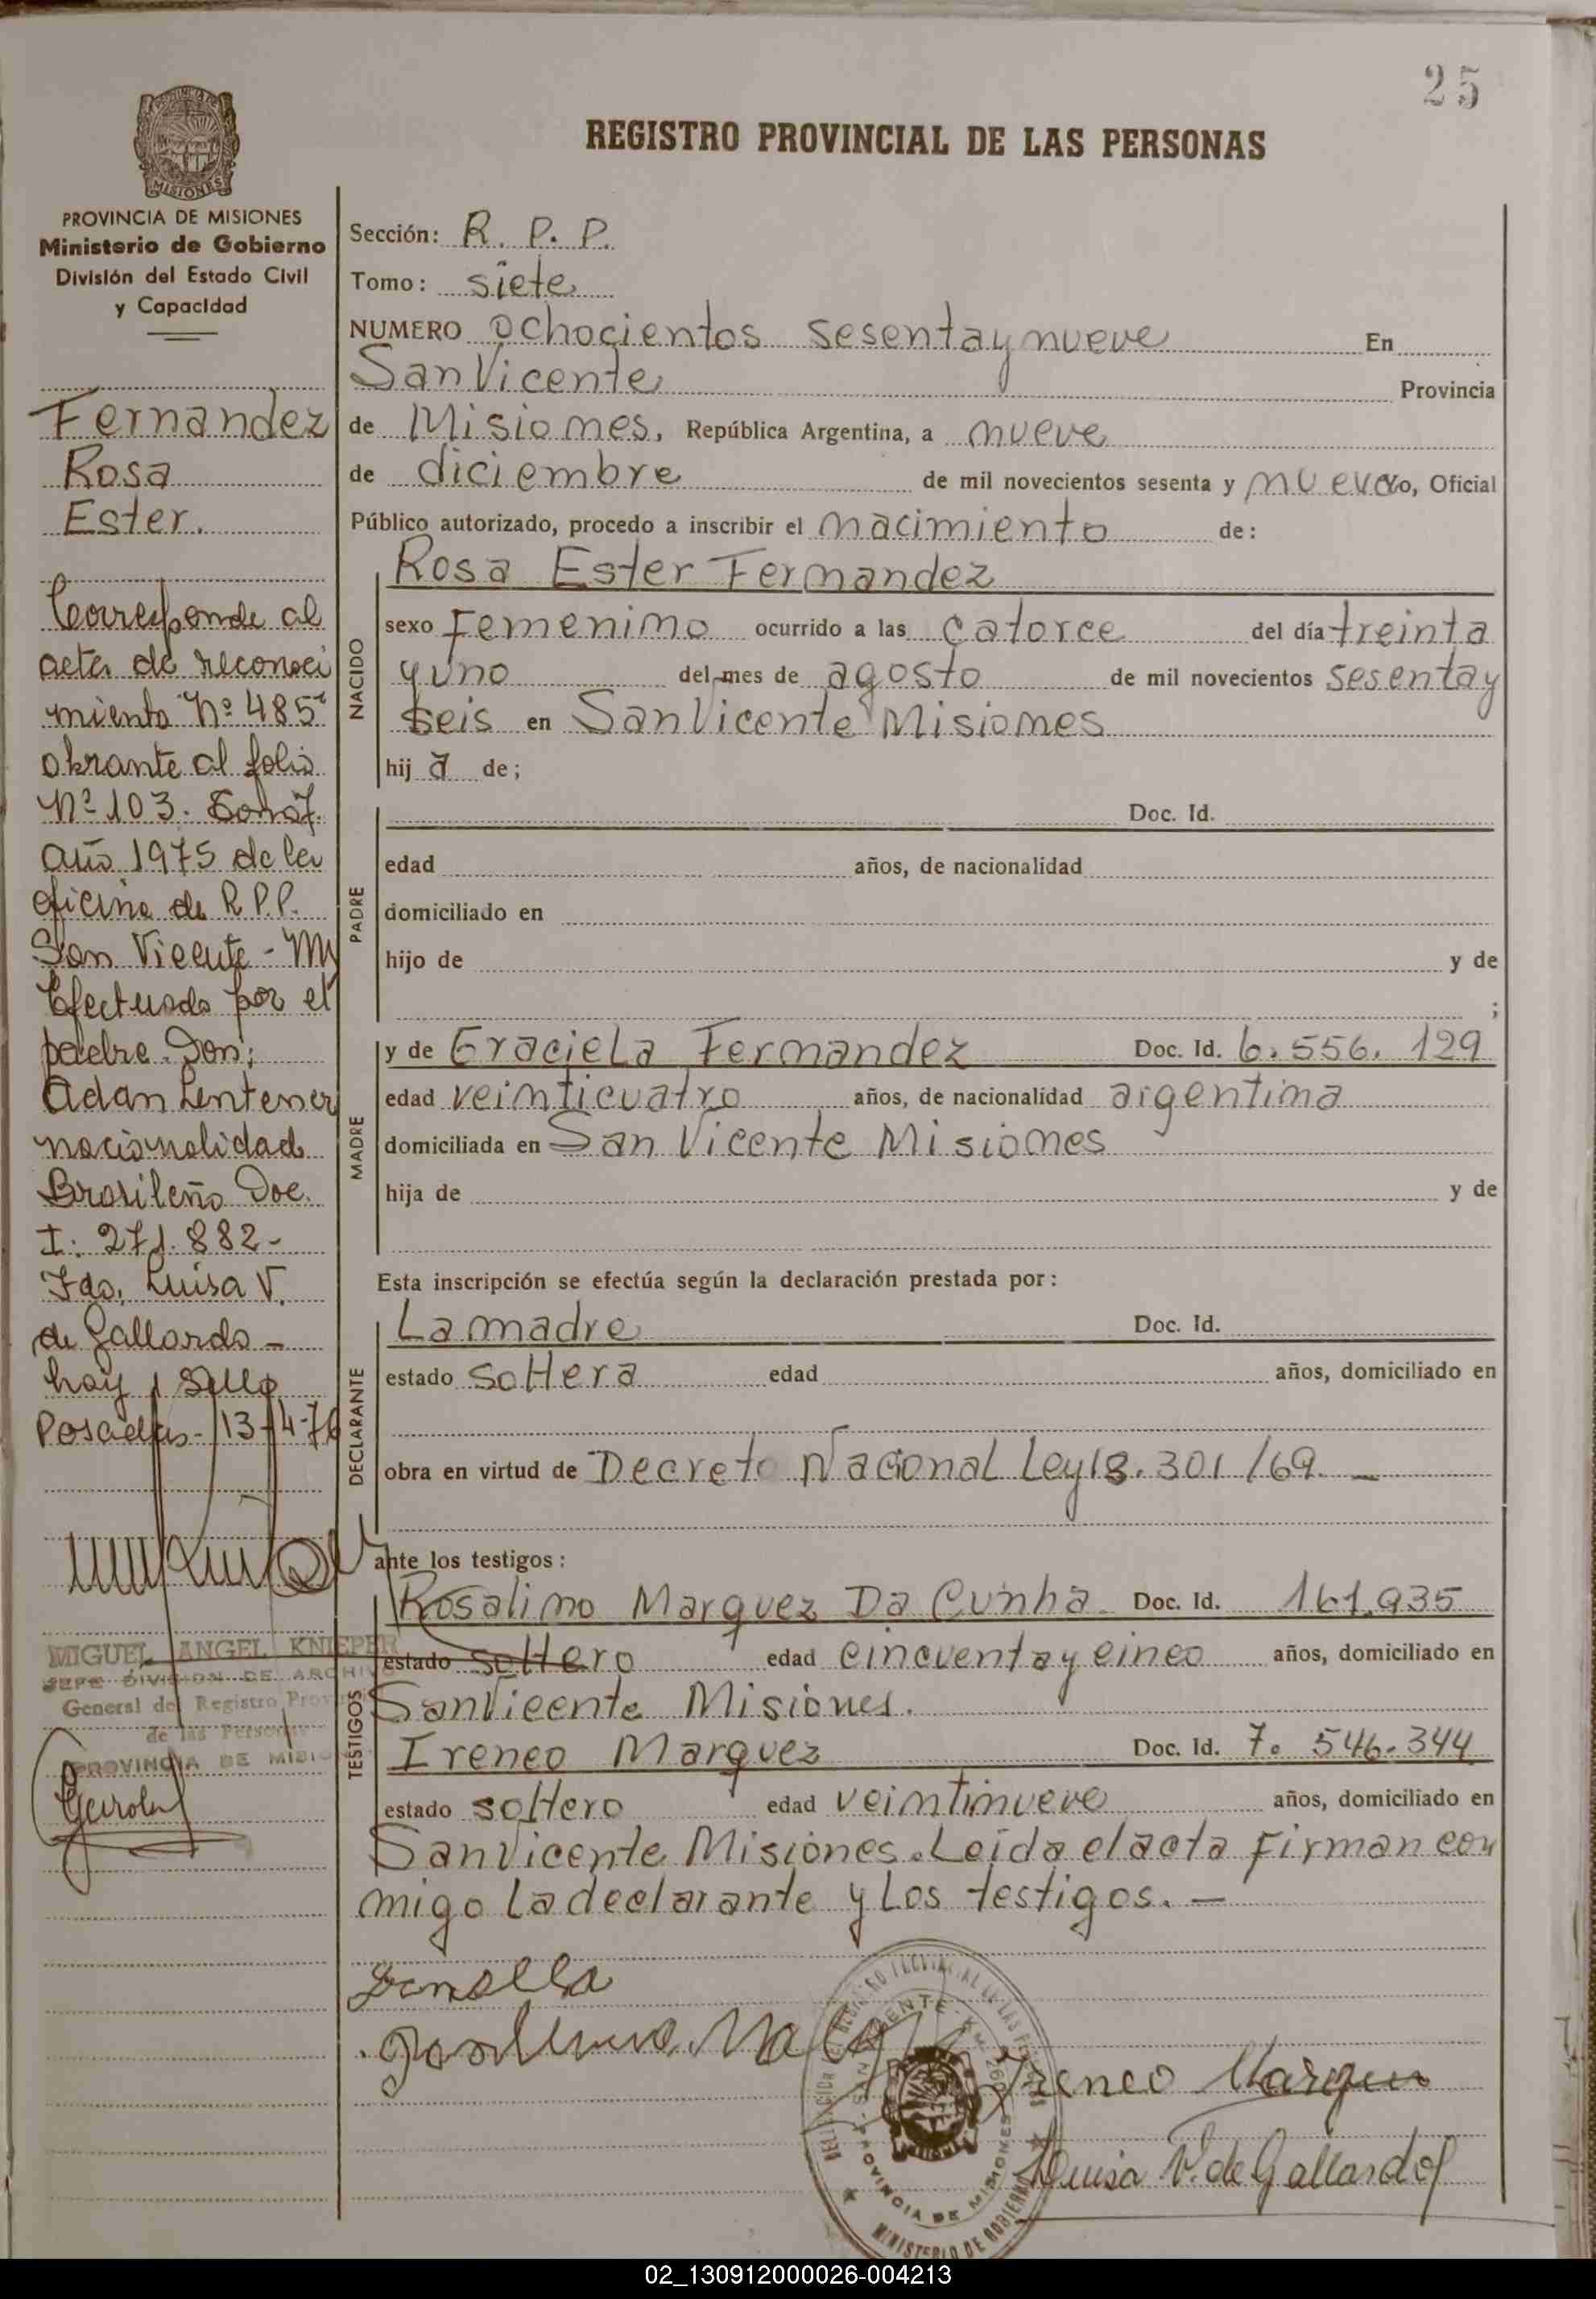 25
REGISTRO PROVINCIAL DE LAS PERSONAS
MISIONES
PROVINCIA DE MISIONES
Ministerio de Gobierno
División del Estado Civil
y Capacidad
Fernandez
Rosa
Ester.
Corresponde al
acta de reconoci
miento Nº 485
obrante al folio
Nº 103.
año 1975 de la
oficina de R.P.P.
San Vicente - Mn
Efectuado por el
padre Don;
Adan Lentener
nacionalidad
Brasileño Doc.
I: 271.882-
Fdo. Luisa V.
de Gallardo -
hay 1 sello
Posadas - 13-4-76
MIGUEL ANGEL KNIEPER
JEFE DIVISION DE ARCHIV
General del Registro Prov
de las Personas
PROVINCIA DE MISIO
Sección: R. P. P.
Tomo: siete
NUMERO ochocientos sesenta y nueve En
San Vicente Provincia
de Misiones, República Argentina, a nueve
de diciembre de mil novecientos sesenta y nueve Yo, Oficial
Público autorizado, procedo a inscribir el nacimiento de:
NACIDO
Rosa Ester Fernandez
sexo Femenino ocurrido a las catorce del día treinta
y uno del mes de agosto de mil novecientos sesenta y
seis en San Vicente Misiones
hij a de;
PADRE
Doc. Id.
edad años, de nacionalidad
domiciliado en
hijo de y de
;
MADRE
y de Graciela Fernandez Doc. Id. 6.556.129
edad veinticuatro años, de nacionalidad argentina
domiciliada en San Vicente Misiones
hija de y de
Esta inscripción se efectúa según la declaración prestada por:
DECLARANTE
La madre Doc. Id.
estado soltera edad años, domiciliado en
obra en virtud de Decreto Nacional Ley 18.301/69. -
ante los testigos:
TESTIGOS
Rosalino Marquez Da Cunha Doc. Id. 161.935
estado soltero edad cincuenta y cinco años, domiciliado en
San Vicente Misiones.
Ireneo Marquez Doc. Id. 7.546.344
estado soltero edad veintinueve años, domiciliado en
San Vicente Misiones. Leida el acta firman con
migo la declarante y los testigos. -
Ireneo Marquez
Luisa V. de Gallardo
PROVINCIA DE MISIONES
MINISTERIO DE GOBIERNO
02_130912000026-004213